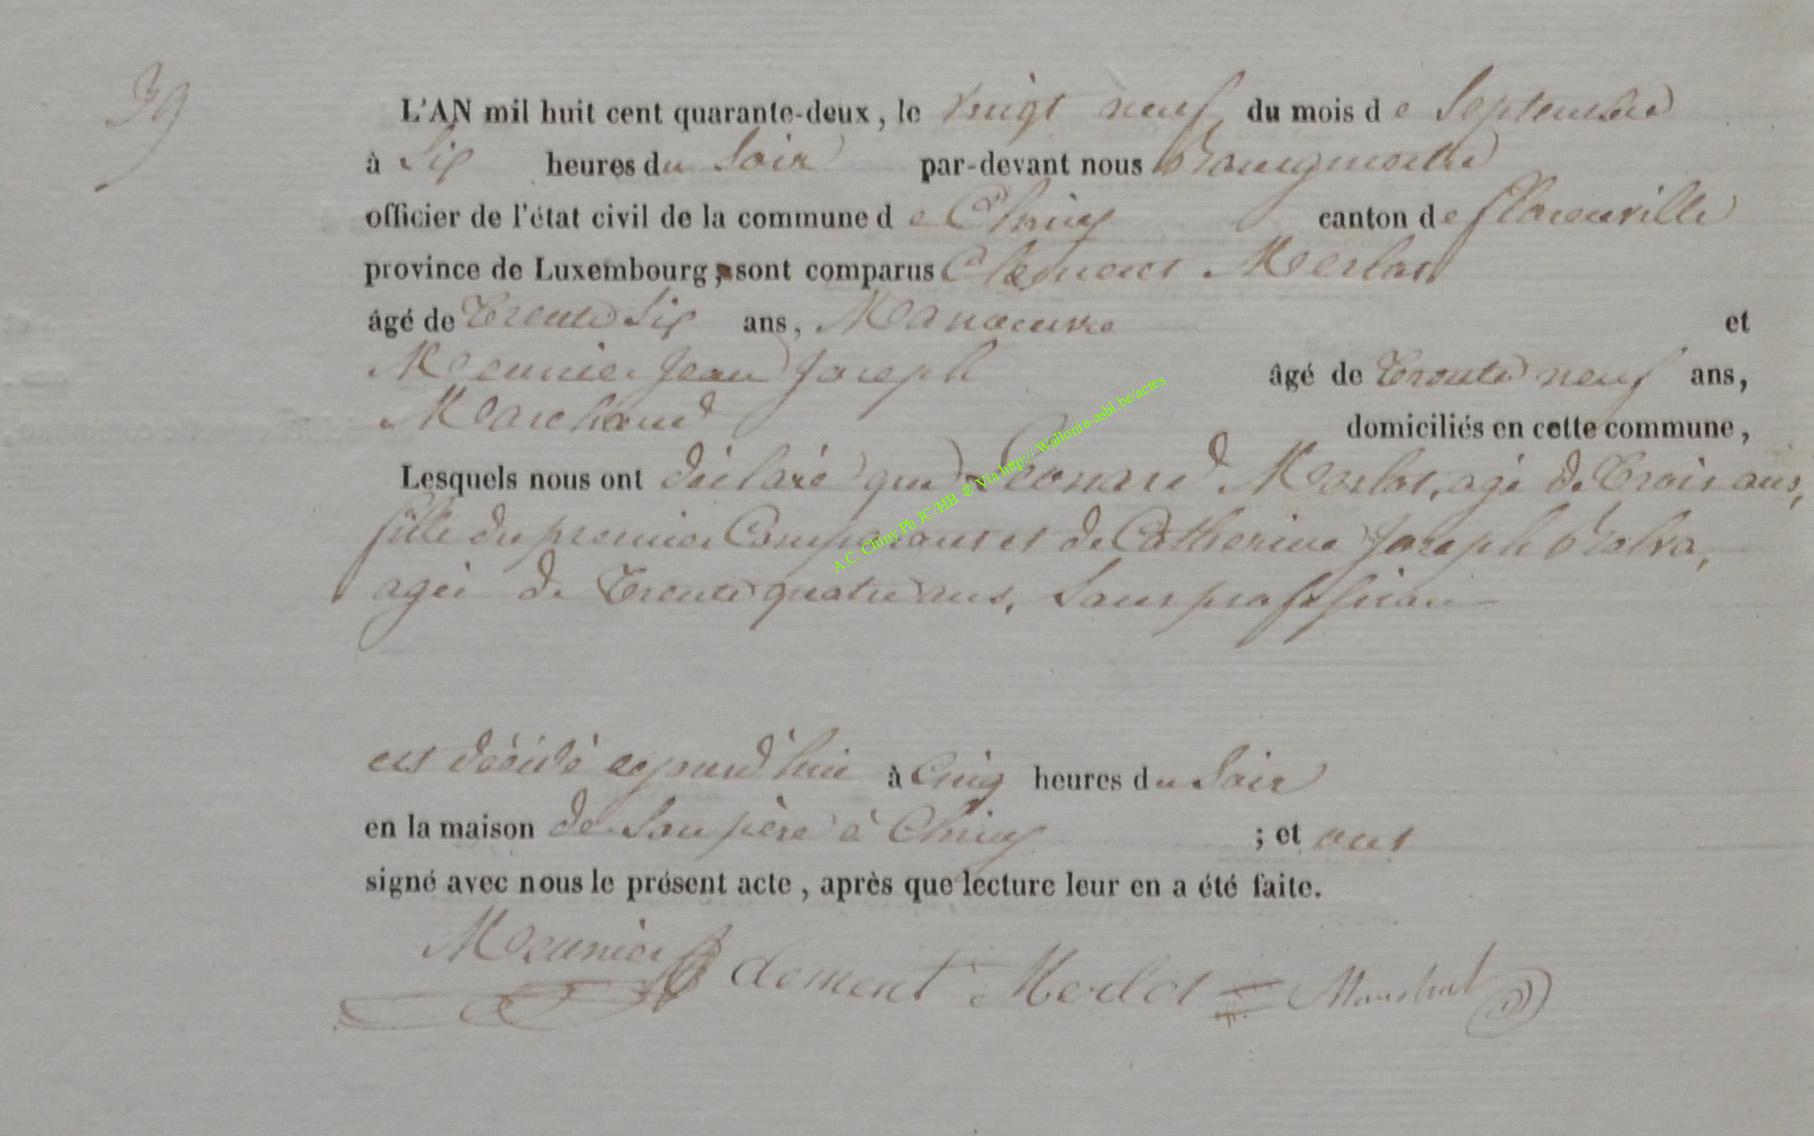 39
L'AN mil huit cent quarante-deux, le vingt neuf du mois de Septembre
à Six heures du Soir par-devant nous Bourgmestre
officier de l'état civil de la commune de Chiny canton de florenville
province de Luxembourg, sont comparus Clément Merlot
âgé de Trente Six ans, Manoeuvre et
Meunier Jean Joseph âgé de Trente neuf ans,
Marchand domiciliés en cette commune,
Lesquels nous ont déclaré que Léonard Merlot, agé de Trois ans,
fils du premier Comparant et de Catherine Joseph
agée de Trente quatre ans, Sans profession
est décédé aujourd'hui à Cinq heures du Soir
en la maison de Son père à Chiny ; et ont
signé avec nous le présent acte, après que lecture leur en a été faite.
Meunier clement Merlot
A.C. Chiny Ph JC/HB @ Via http:// Wallonia-asbl.be/actes